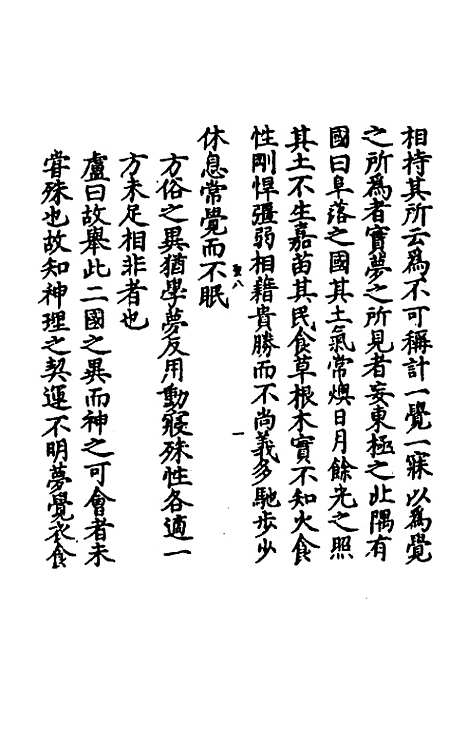 相持其所云爲不可稱計一覺一寐以爲覺
之所爲者實夢之所見者妄東極之北隅有
國曰阜落之國其土氣常燠日月餘光之照
其土不生嘉苗其民食草根木實不知火食
性剛悍彊弱相藉貴勝而不尚義多馳步少
休息常覺而不眠
方俗之異猶學夢反用動寢殊性各適一
方未足相非者也
盧曰故舉此二國之異而神之可會者未
甞殊也故知神理之契運不明夢覺衣食